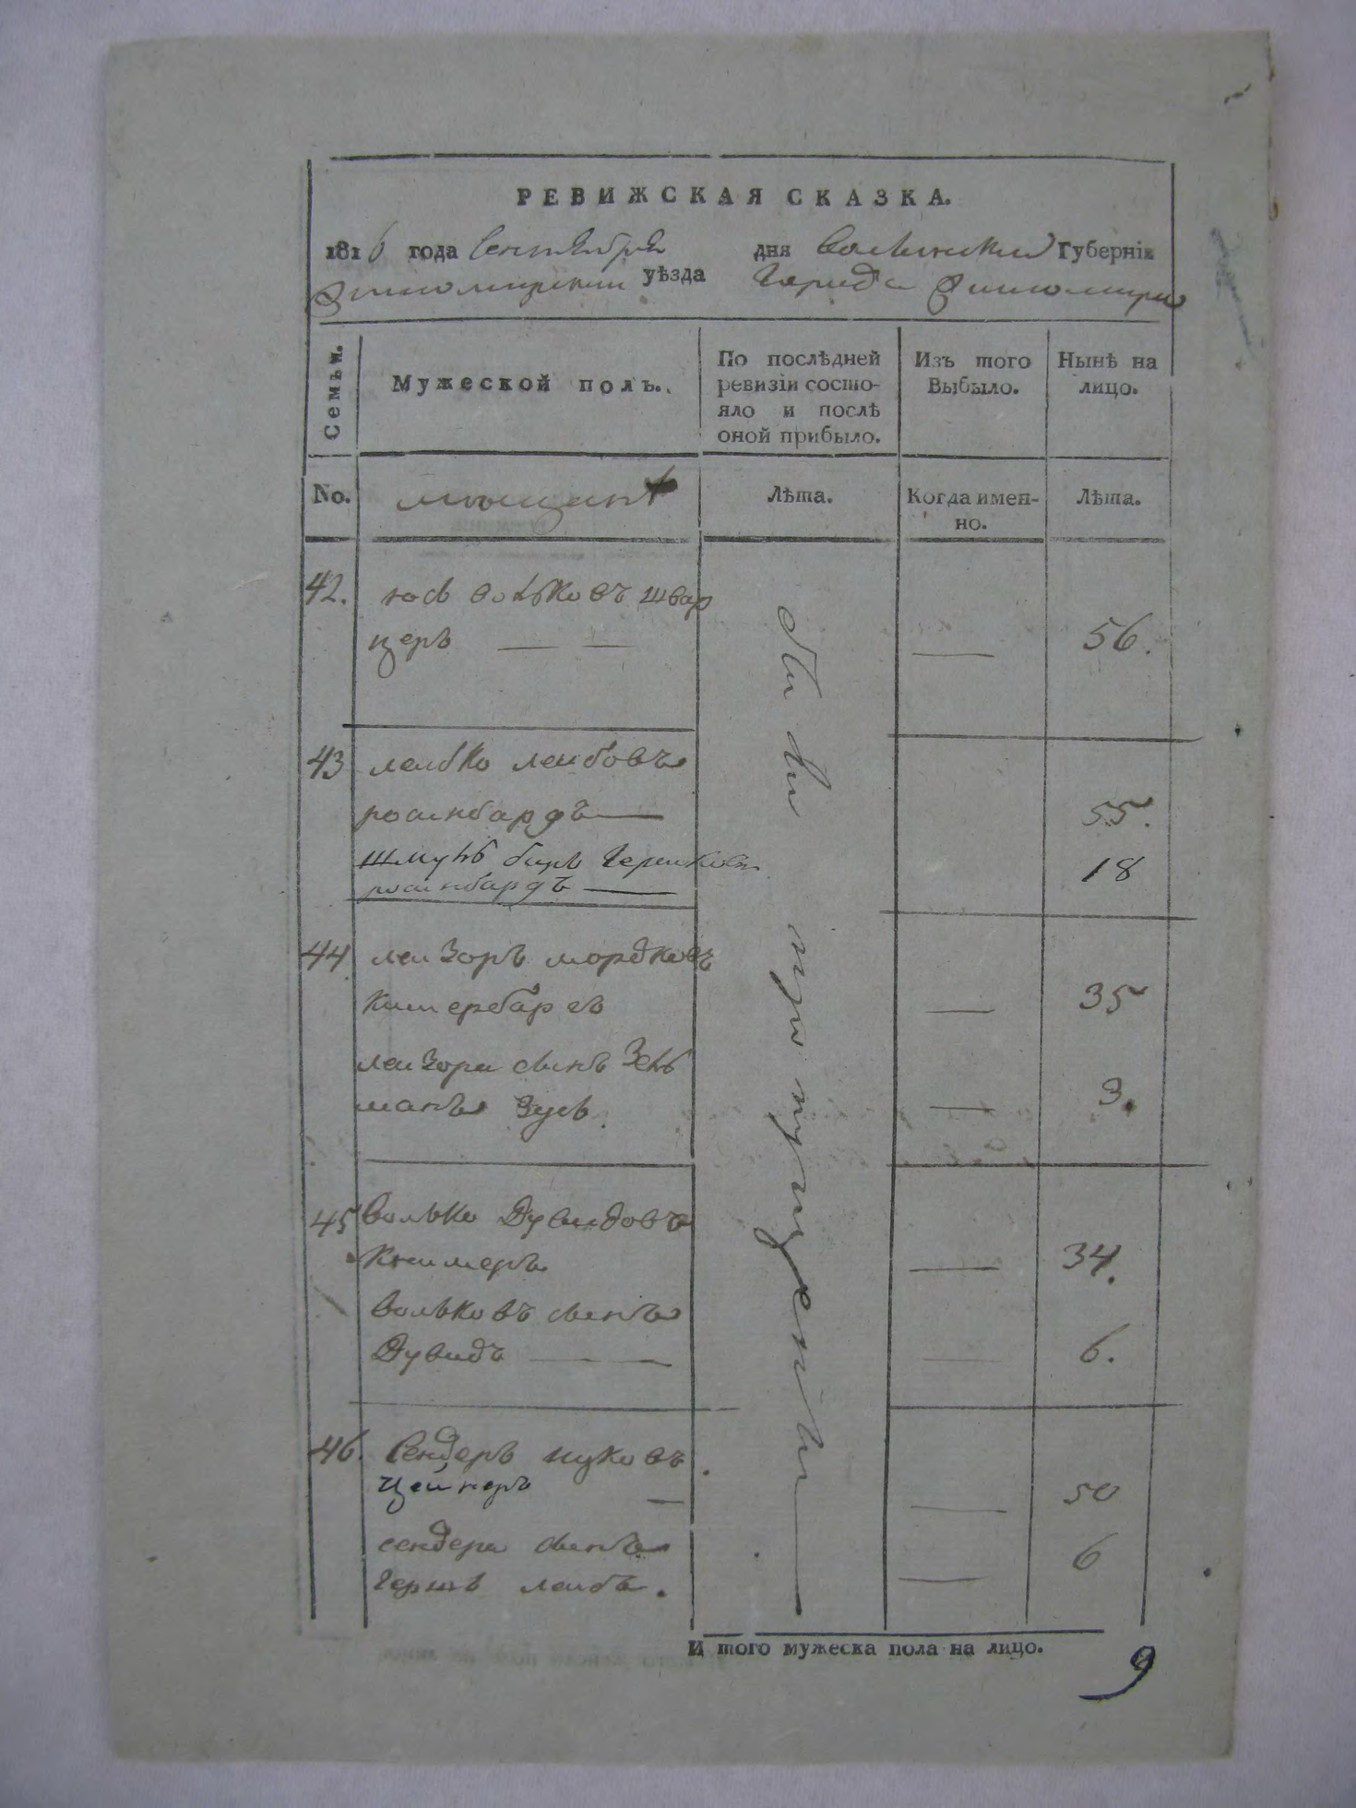 РЕВИЖСКАЯ СКАЗКА.
1816 года Сентября дня Волынской Губерніи
Житомирскаго уѣзда Города Житомира
Семьи.
Мужеской полъ.
По послѣдней ревизіи состо-
яло и послѣ
оной прибыло.
Изъ того
Выбыло.
Нынѣ на
лицо.
No.
Лѣта.
Когда имен-
но.
Лѣта.
42. Іосъ Вольковъ Швар
церъ — — — 56.
43 Лейбко Лейбовъ
роинбардъ — 55.
Шмуль беръ Гершковъ 18
роинбардъ —
44 Лейзоръ Мордковъ
— 35
Лейзора сынъ Зель
манъ Зусь. — 3.
45 Волько Дувидовъ
— 34.
Вольковъ сынъ
Дувидъ — — — 6.
46. Сендеръ Ицковъ
Цейнеръ — — 50
Сендера сынъ
Гершъ Лейбъ. — 6
были пропущены
И того мужеска пола на лицо. 9